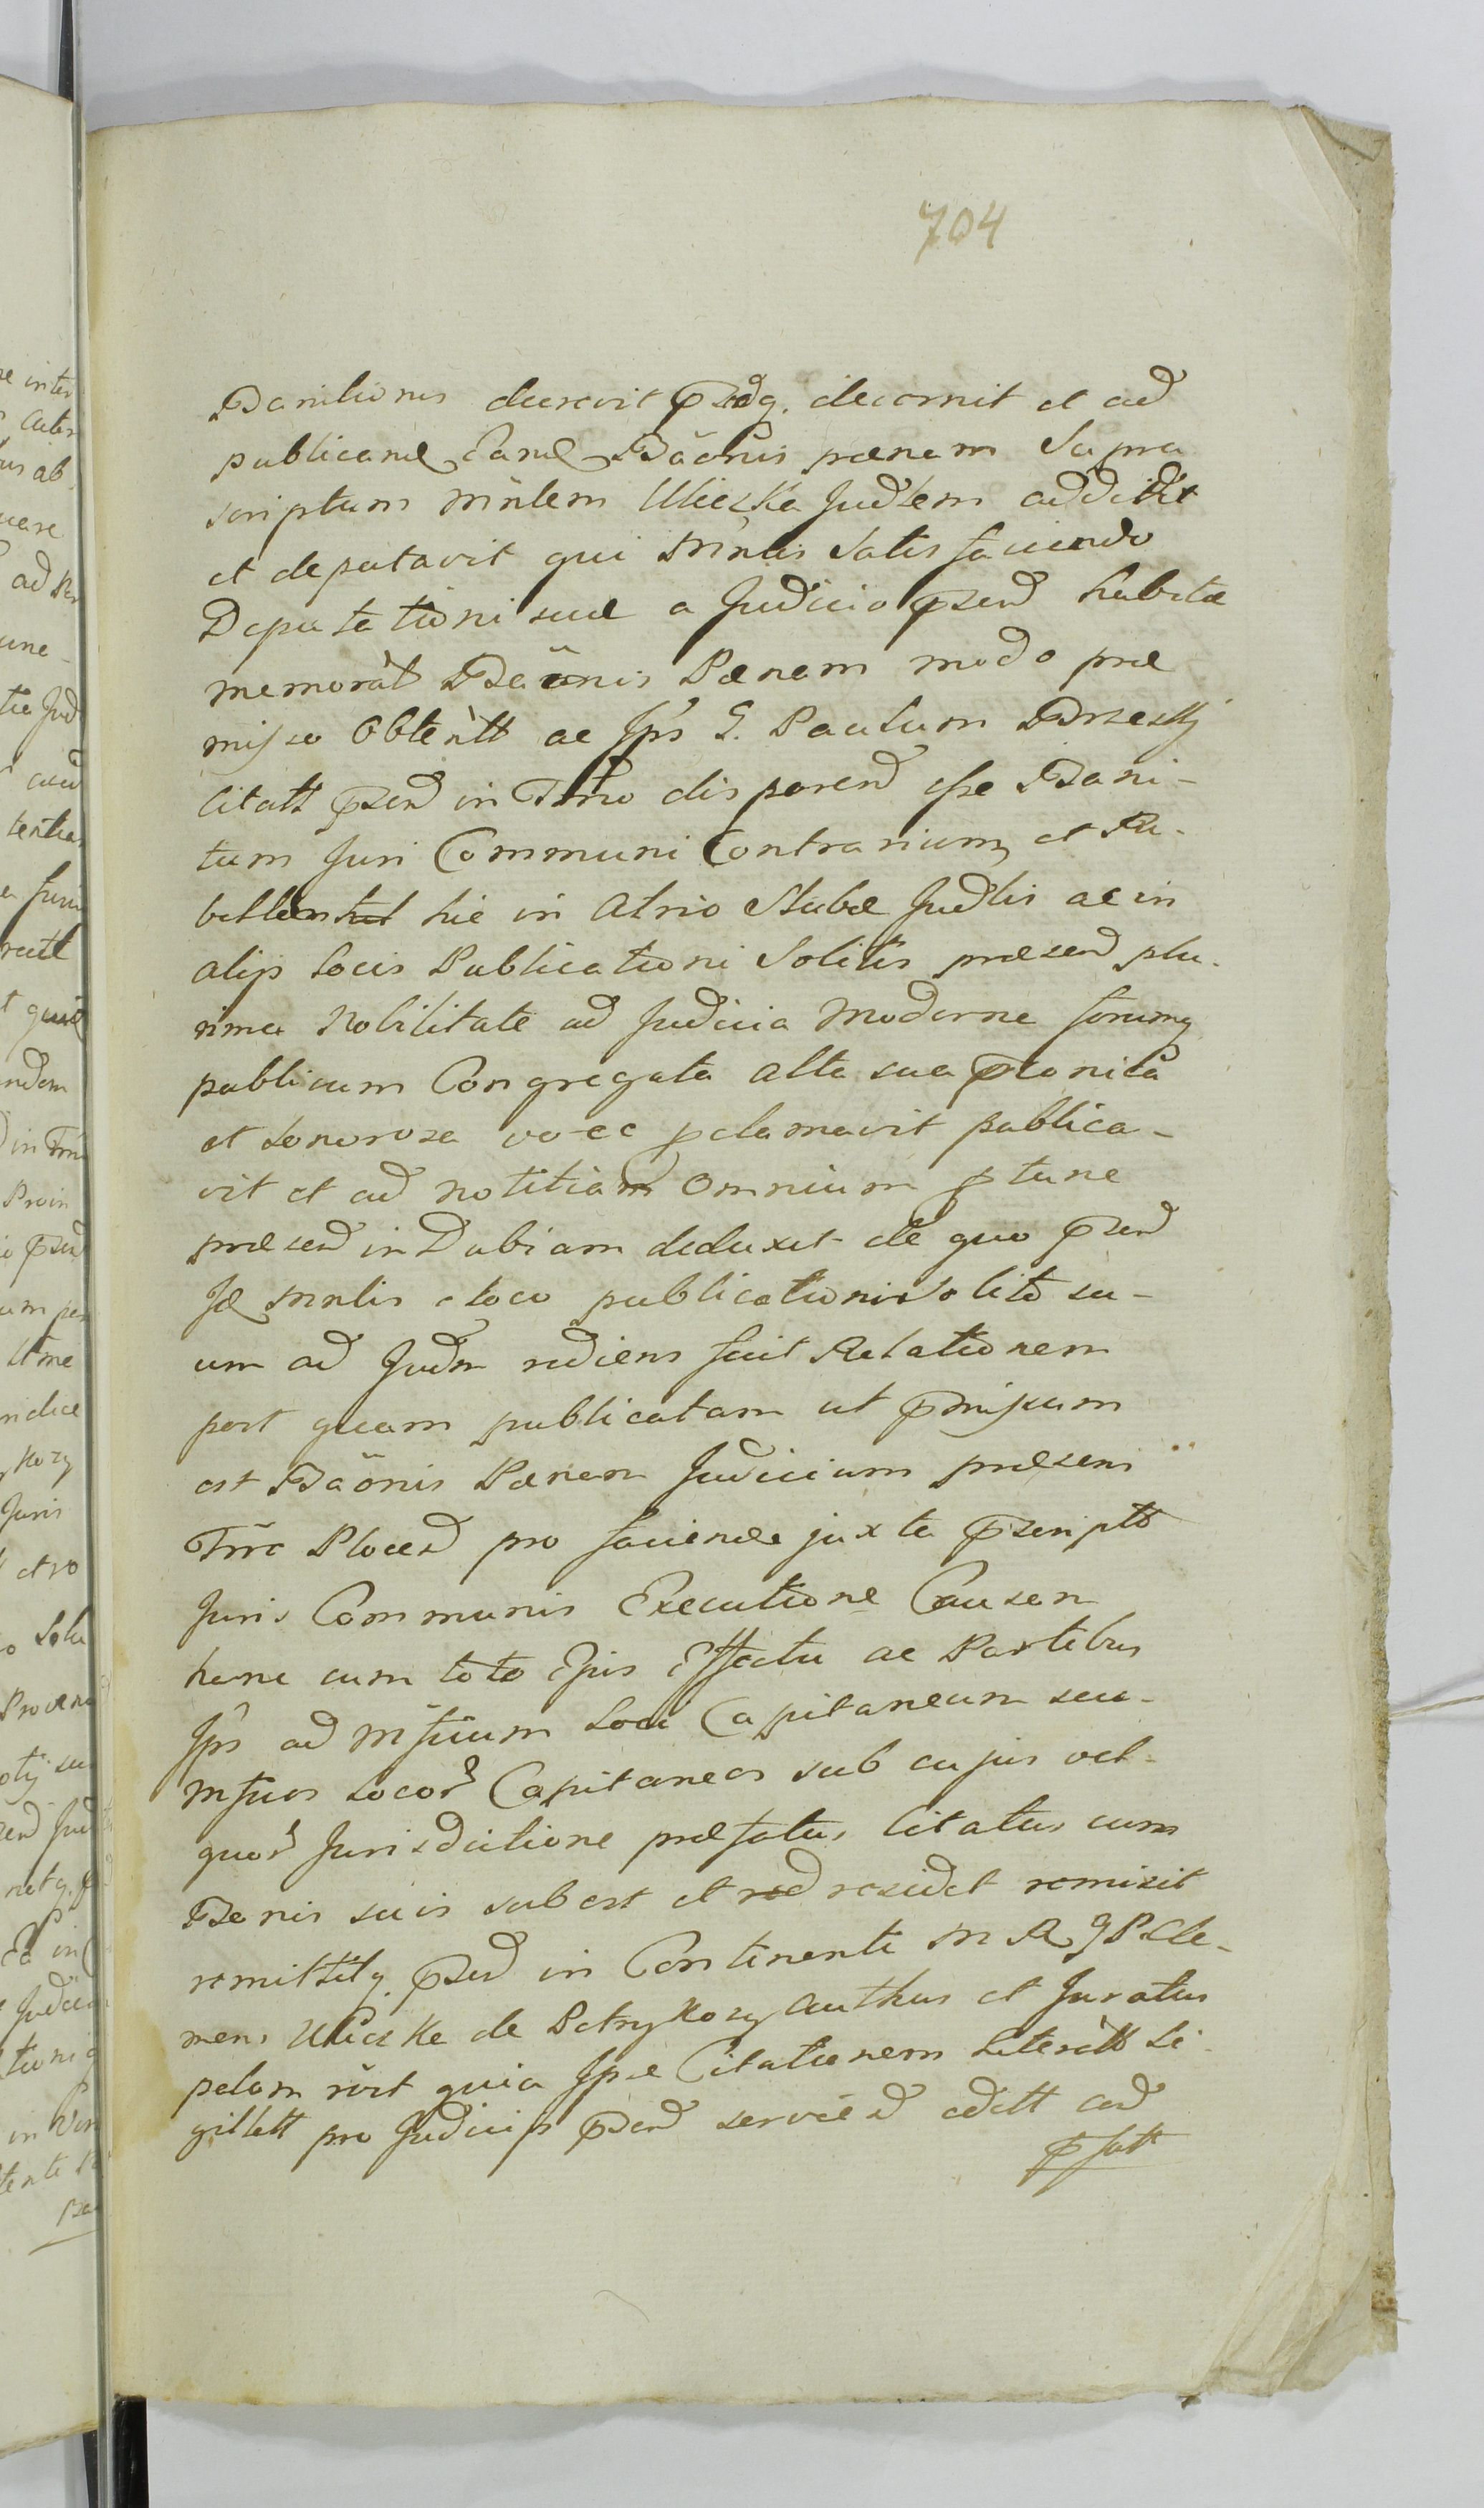 704
Banitionis decrevit decernit et ad
publicand Eand Bãonis pænam Supra
scriptum Mñlem Uliczka Judlem addidit
et deputavit qui Mñlis Satis faciendo
Deputationi suæ a Judicio pzend habitæ
memorat Bãonis Pænam modo præ
misso Obtentt ac Ips G. Paulum Brzeskj
Citatt pzend in Trno disparend esse Bani-
tum Juri Communi Contrarium et Re-
bellem hic in Atrio Stubæ Judlis ac in
alijs Locis Publicationi Solitis præsend plu-
rima Nobilitate ad Judicia Moderne forumq
publicum Congregata alta sua
et sonorosa voce pclamavit publica-
vit et ad notitiam Omnium p tunc
præsend in Dubiam deduxit de quo pzend
Jd Mnlis e loco publicationi Solito su-
um ad Judm rediens fecit Relationem
post quam publicatam ut pmissum
est Bãonis Pænam Judicium præsens
Trre Plocen pro facienda juxta pscripto
Juris Communis Executione Causam
hanc cum toto Ejus Effectu ac Partibus
Ips ad Mfficum Loci Capitaneum seu
Mficos Locor Capitaneos sub cujus vel
quor Jurisdictione præfatus Citatus cum
Bonis suis subest et residet remisit
remittitq pzend in Continenti M R G P Cle-
mens Uliczka de Petrykozy Authus et Juratus
palam rvit quia Ipse Citationem Literatt Si-
gillatt pro Judicijs pzend serviend edtt ad
p fatt